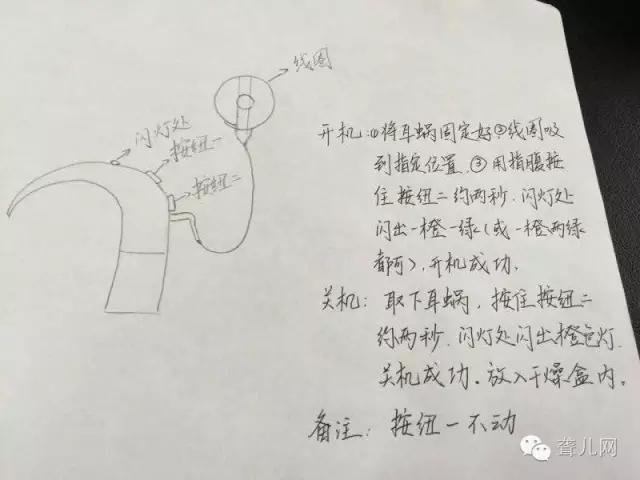 线圈
闪灯处
按纽一
按纽二
开机:①将耳蜗固定好②线圈吸
到指定位置.③用指腹按
住按纽二约两秒.闪灯处
闪出一橙一绿(或一橙两绿
都可),开机成功.
关机:取下耳蜗,按住按纽二
约两秒.闪灯处闪出橙色灯.
关机成功.放入干燥盒内.
备注:按纽一不动
聋儿网